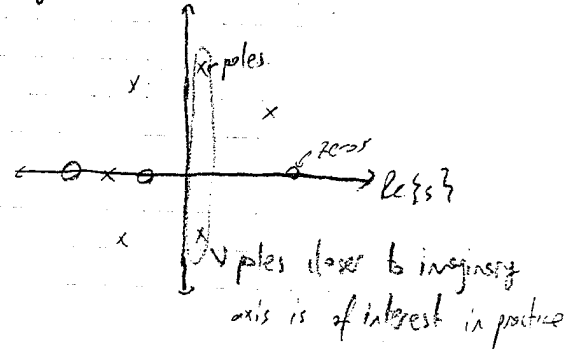 poles
zeros
Re{s}
poles closer to imaginary
axis is of interest in practice